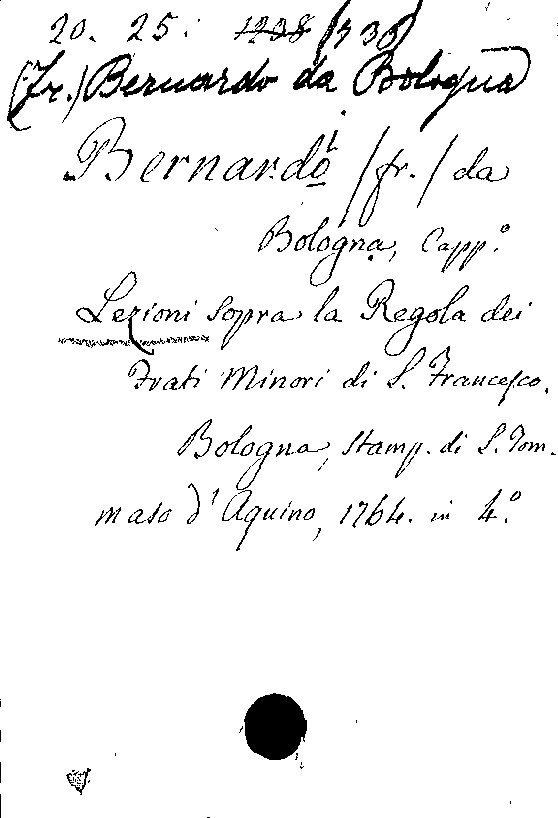 20. 25. 1238 1736
(Fr.) Bernardo da Bologna
Bernardo /fr./ da
Bologna, Capp.º
Lezioni sopra la Regola dei
Frati Minori di S. Francesco.
Bologna, Stamp. di S. Tom-
maso d'Aquino, 1764. in 4.º